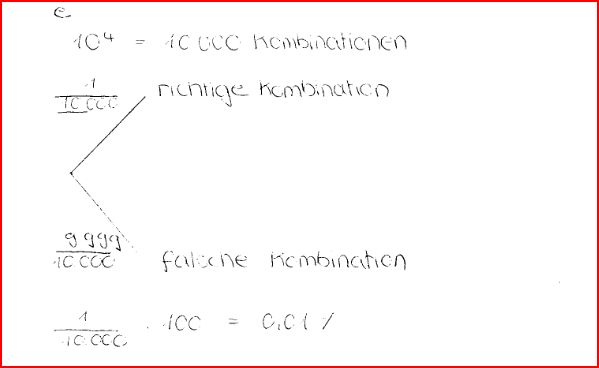 e.
10⁴ = 10 000 Kombinationen
1/10 000 richtige Kombination
9999/10 000 falsche Kombination
1/10.000 · 100 = 0,01 %